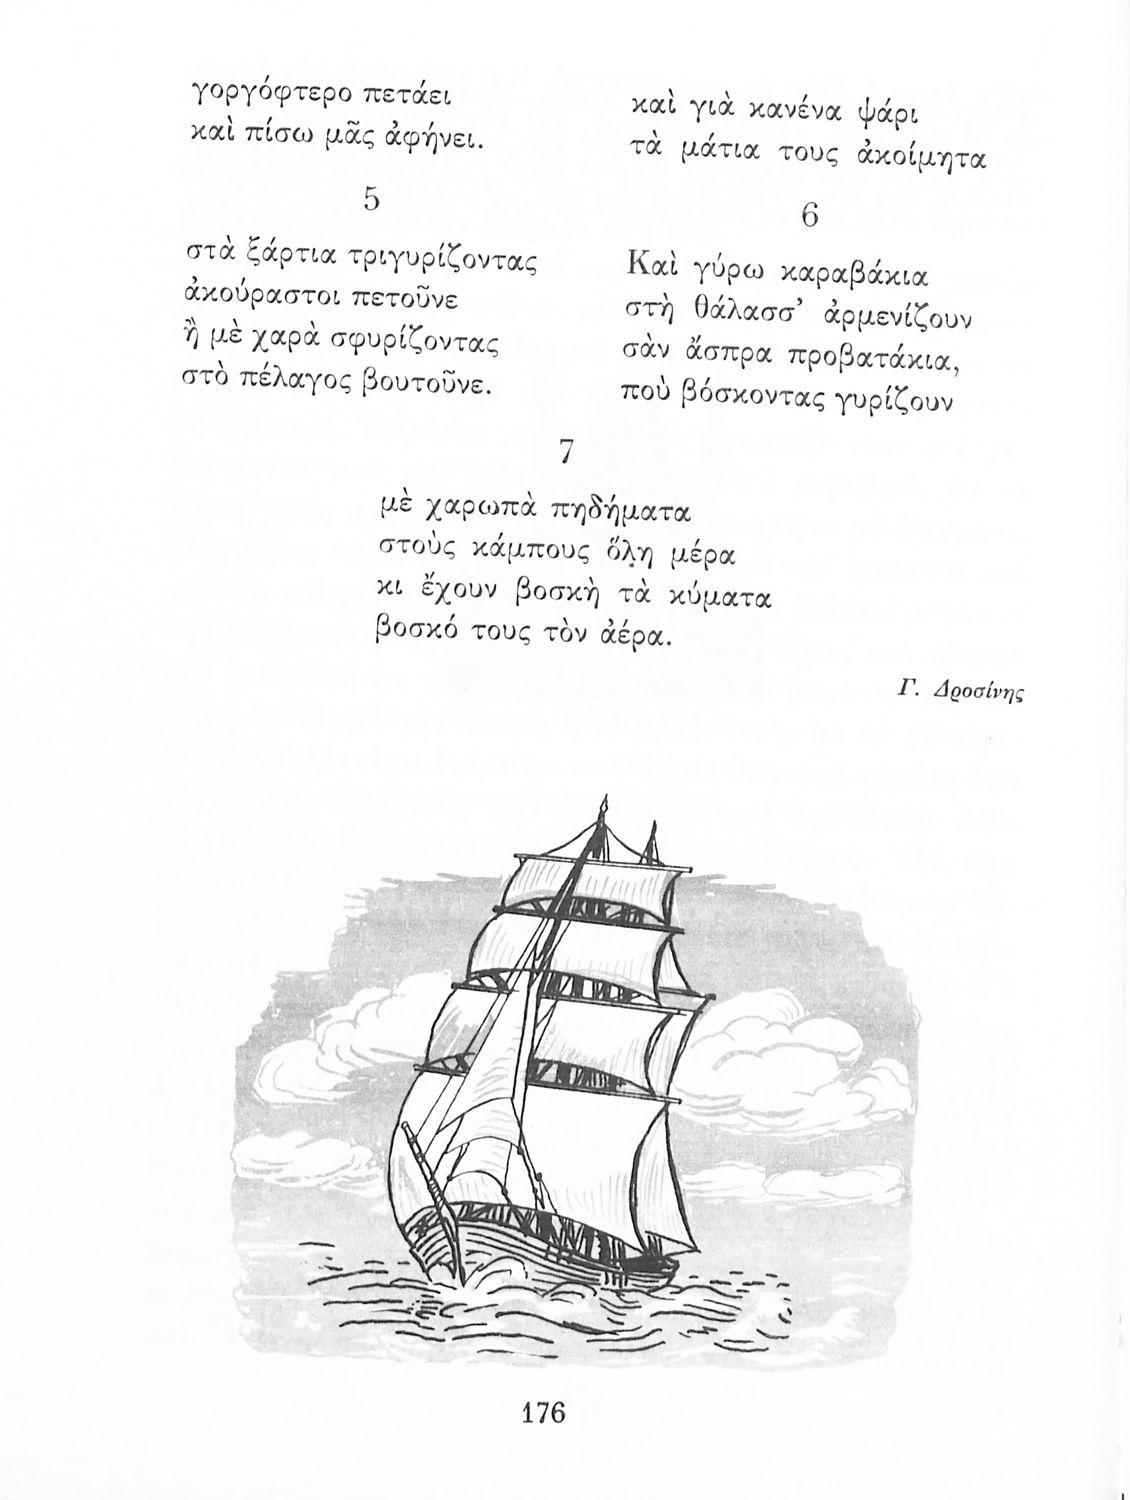 γοργόφτερο πετάει
καὶ πίσω μᾶς ἀφήνει.
καὶ γιὰ κανένα ψάρι
τὰ μάτια τους ἀκοίμητα
5
στὰ ξάρτια τριγυρίζοντας
ἀκούραστοι πετοῦνε
ἢ μὲ χαρὰ σφυρίζοντας
στὸ πέλαγος βουτοῦνε.
6
Καὶ γύρω καραβάκια
στὴ θάλασσ’ ἀρμενίζουν
σὰν ἄσπρα προβατάκια,
ποὺ βόσκοντας γυρίζουν
7
μὲ χαρωπὰ πηδήματα
στοὺς κάμπους ὅλη μέρα
κι ἔχουν βοσκὴ τὰ κύματα
βοσκό τους τὸν ἀέρα.
Γ. Δροσίνης
176